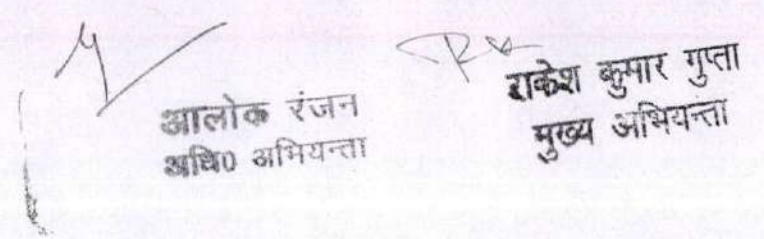 आलोक रंजन
अधि0 अभियन्ता
राकेश कुमार गुप्ता
मुख्य अभियन्ता